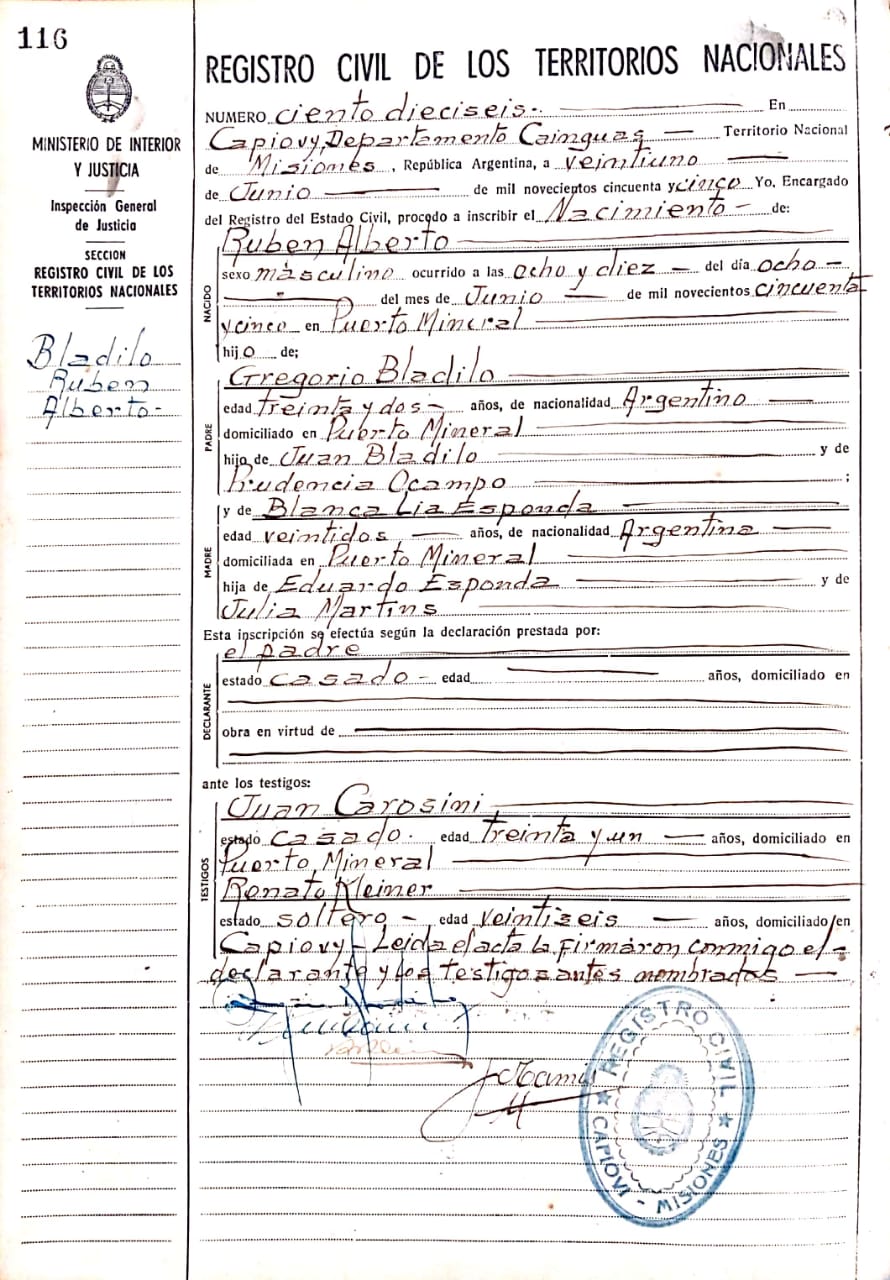 116
MINISTERIO DE INTERIOR
Y JUSTICIA
Inspección General
de Justicia
SECCION
REGISTRO CIVIL DE LOS
TERRITORIOS NACIONALES
Bladilo
Ruben
Alberto-
REGISTRO CIVIL DE LOS TERRITORIOS NACIONALES
NUMERO ciento dieciseis.- En
Capiovy, Departamento Cainguas — Territorio Nacional
de Misiones, República Argentina, a veintiuno —
de Junio — de mil novecientos cincuenta y cinco Yo, Encargado
del Registro del Estado Civil, procedo a inscribir el Nacimiento - de:
NACIDO
Ruben Alberto —
sexo masculino ocurrido a las ocho y diez — del día ocho -
— del mes de Junio — de mil novecientos cincuenta
y cinco en Puerto Mineral —
hijo de;
PADRE
Gregorio Bladilo —
edad treinta y dos - años, de nacionalidad Argentino —
domiciliado en Puerto Mineral —
hijo de Juan Bladilo — y de
Prudencia Ocampo — ;
MADRE
y de Blanca Lia Esponda —
edad veintidos — años, de nacionalidad Argentina —
domiciliada en Puerto Mineral —
hija de Eduardo Esponda — y de
Julia Martins —
Esta inscripción se efectúa según la declaración prestada por:
DECLARANTE
el padre —
estado casado - edad — años, domiciliado en
obra en virtud de —
ante los testigos:
TESTIGOS
Juan Carosini —
estado casado. edad treinta y un — años, domiciliado en
Puerto Mineral —
Renato Kleiner —
estado soltero - edad veintiseis — años, domiciliado en
Capiovy - Leida el acta la firmáron conmigo el-
declarante y los testigos antes nombrados —
REGISTRO CIVIL
CAPIOVI - MISIONES